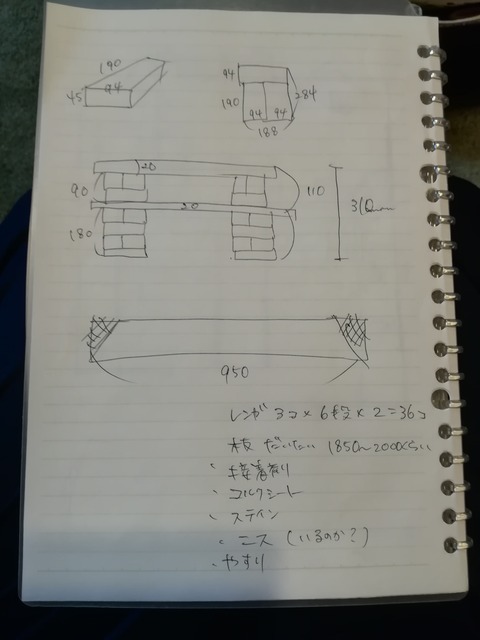 190
94
45
94
190
94 94
284
188
20
90
110
20
180
310mm
950
レンガ 3コ×6段×2=36コ
板 だいたい 1850〜2000くらい
、接着剤
、コルクシート
、ステイン
、ニス (いるのか?)
、やすり